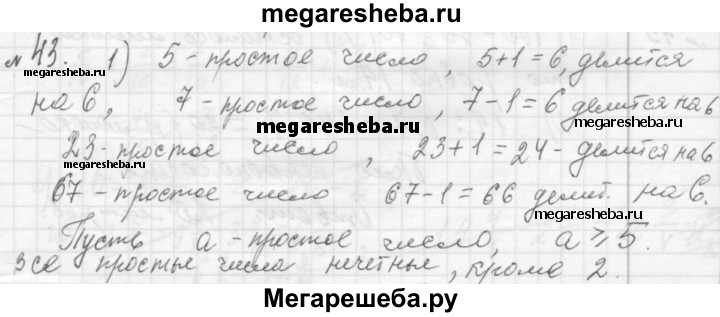 megaresheba.ru
№ 43. 1) 5 - простое число, 5+1=6, делится
megaresheba.ru
на 6, 7 - простое число, 7-1=6 делится на 6
megaresheba.ru
megaresheba.ru
23 - простое число, 23+1=24 - делится на 6
megaresheba.ru
megaresheba.ru
67 - простое число 67-1=66 делит. на 6.
Пусть a - простое число, a ≥ 5.
все простые числа нечётные, кроме 2.
Мегарешеба.ру